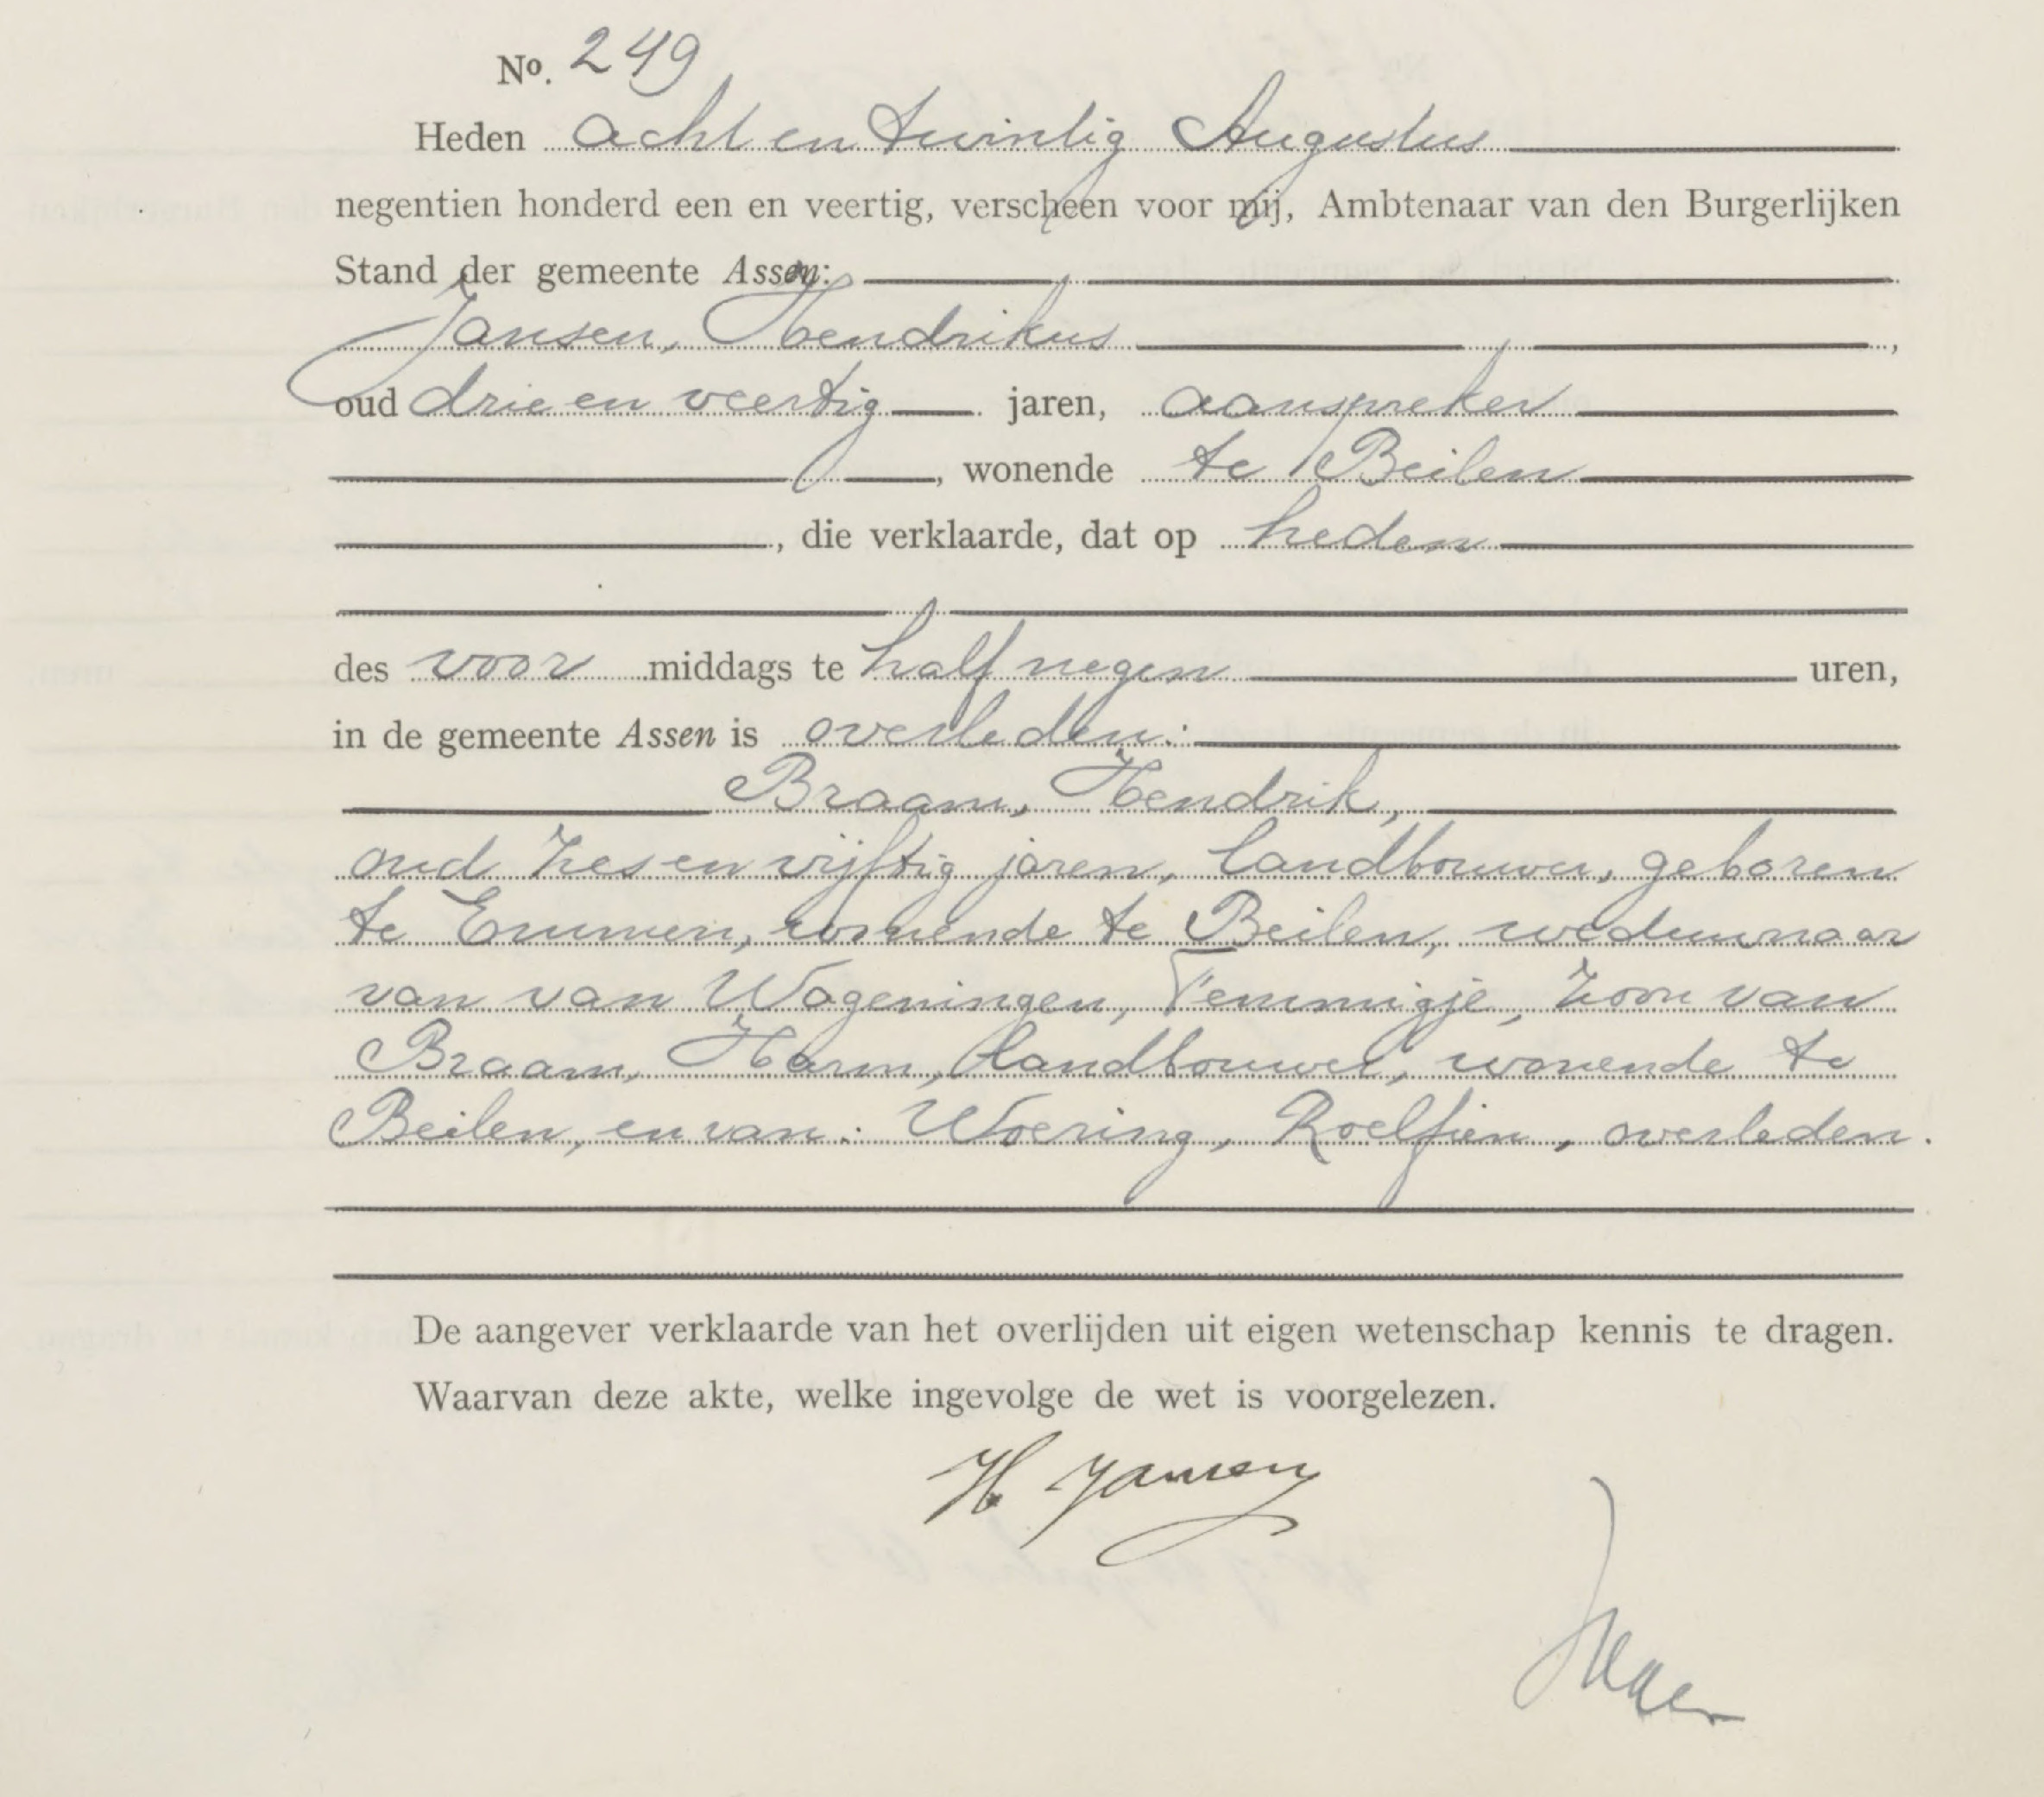 No. 249
Heden acht en twintig Augustus
negentien honderd een en veertig, verscheen voor mij, Ambtenaar van den Burgerlijken
Stand der gemeente Assen:
Jansen, Hendrikus,
oud drie en veertig jaren, aanspreker
, wonende te Beilen
, die verklaarde, dat op heden
des voor middags te half negen uren,
in de gemeente Assen is overleden:
Braam, Hendrik,
oud zes en vijftig jaren, landbouwer, geboren
te Emmen, wonende te Beilen, weduwnaar
van van Wageningen, Femmigje, zoon van
Braam, Harm, landbouwer, wonende te
Beilen, en van: Woering, Roelfien, overleden.
De aangever verklaarde van het overlijden uit eigen wetenschap kennis te dragen.
Waarvan deze akte, welke ingevolge de wet is voorgelezen.
H. Jansen